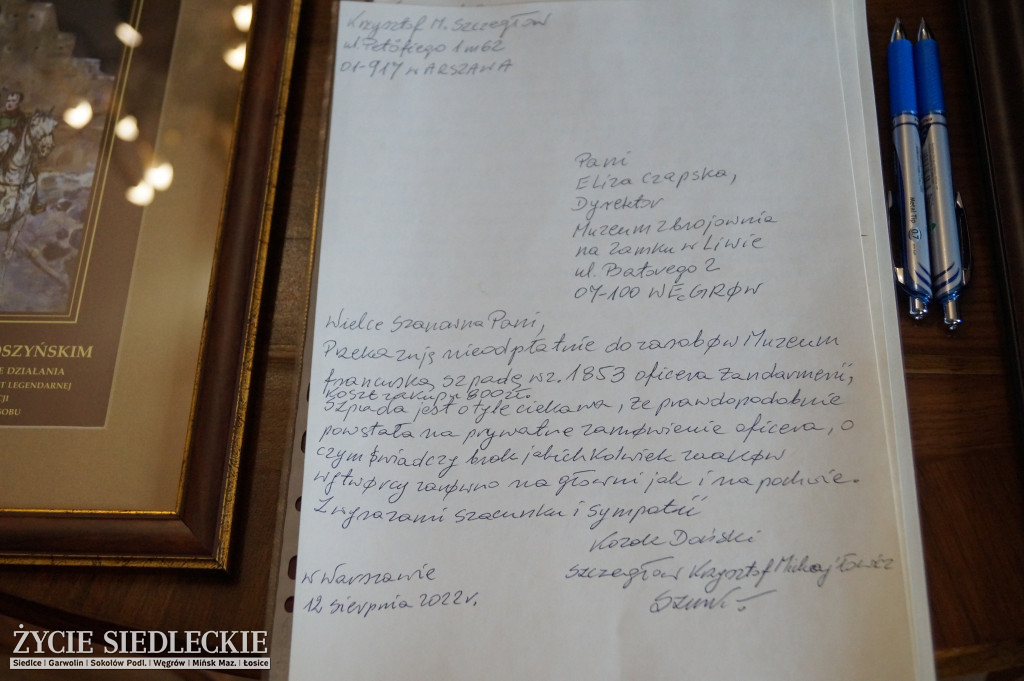 Krzysztof M. Szczegłow
ul. Petöfiego 1 m 62
01-917 WARSZAWA
Pani
Eliza Czapska,
Dyrektor
Muzeum Zbrojownia
na Zamku w Liwie
ul. Batorego 2
07-100 WĘGRÓW
Wielce Szanowna Pani,
Przekazuję nieodpłatnie do zasobów Muzeum
francuską szpadę wz. 1853 oficera żandarmerii,
koszt zakupu 800 zł.
Szpada jest o tyle ciekawa, że prawdopodobnie
powstała na prywatne zamówienie oficera, o
czym świadczy brak jakichkolwiek znaków
wytwórcy zarówno na głowni jak i na pochwie.
Z wyrazami szacunku i sympatii
Kozak Doński
Szczegłow Krzysztof Michajłowicz
w Warszawie
12 sierpnia 2022 r.
OSZYŃSKIM
E DZIAŁANIA
T LEGENDARNEJ
CJI
SOBU
ŻYCIE SIEDLECKIE
Siedlce | Garwolin | Sokołów Podl. | Węgrów | Mińsk Maz. | Łosice